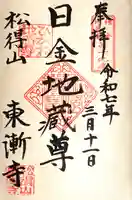 奉拝
令和七年
三月十一日
日金地蔵尊
松得山
東漸寺